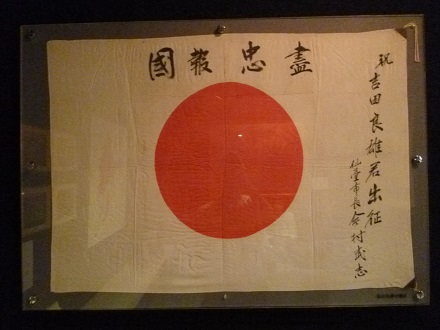 盡忠報國
祝吉田良雄君出征
仙臺市長今村武志